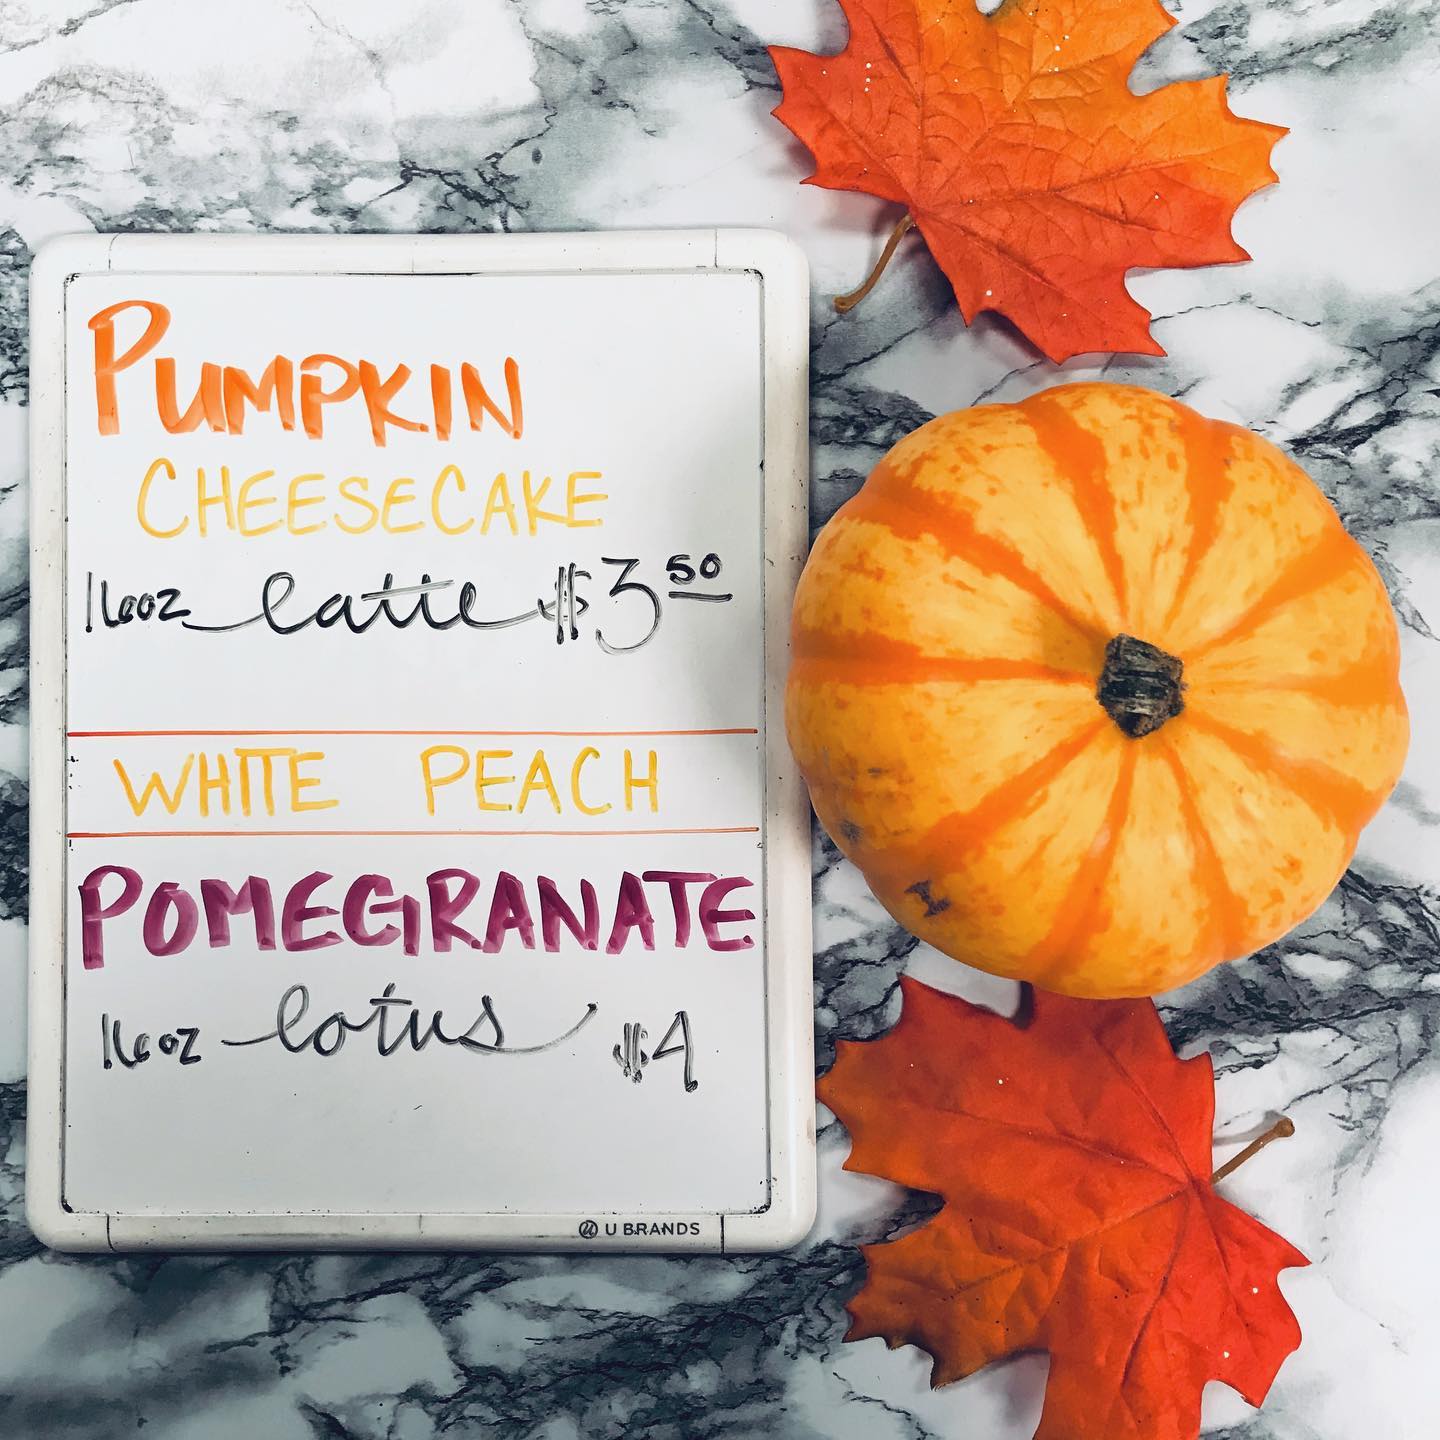 PUMPKIN
CHEESECAKE
16oz latte $3.50
WHITE PEACH
POMEGRANATE
16oz lotus $4
U BRANDS